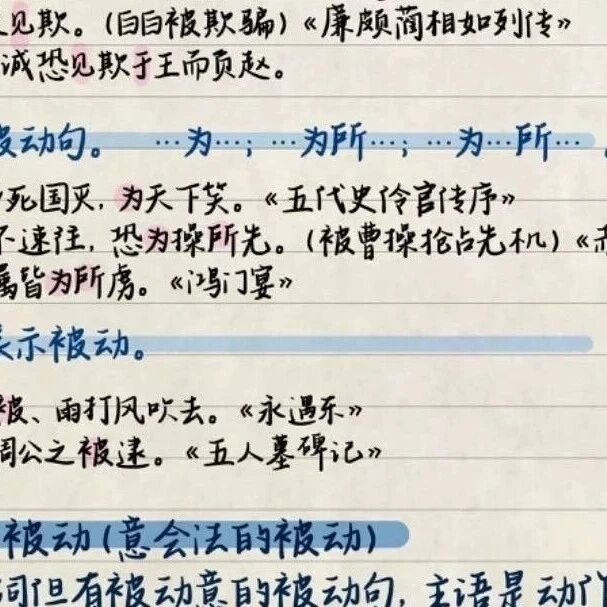 见欺。(白白被欺骗)《廉颇蔺相如列传》
诚恐见欺于王而负赵。
被动句。 …为…;…为所…;…为…所…。
死国灭,为天下笑。《五代史伶官传序》
不速往,恐为操所先。(被曹操抢占先机)《赤
属皆为所虏。《鸿门宴》
表示被动。
被、雨打风吹去。《永遇乐》
周公之被逮。《五人墓碑记》
被动(意会法的被动)
词但有被动意的被动句,主语是动作